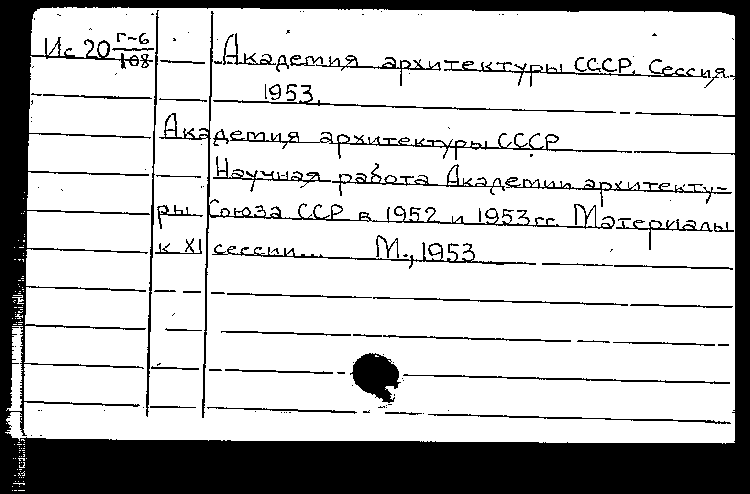 Ис 20 Г-6/108
Академия архитектуры СССР. Сессия.
1953.
Академия архитектуры СССР
Научная работа Академии архитекту-
ры Союза ССР в 1952 и 1953 гг. Материалы
к XI сессии... М., 1953